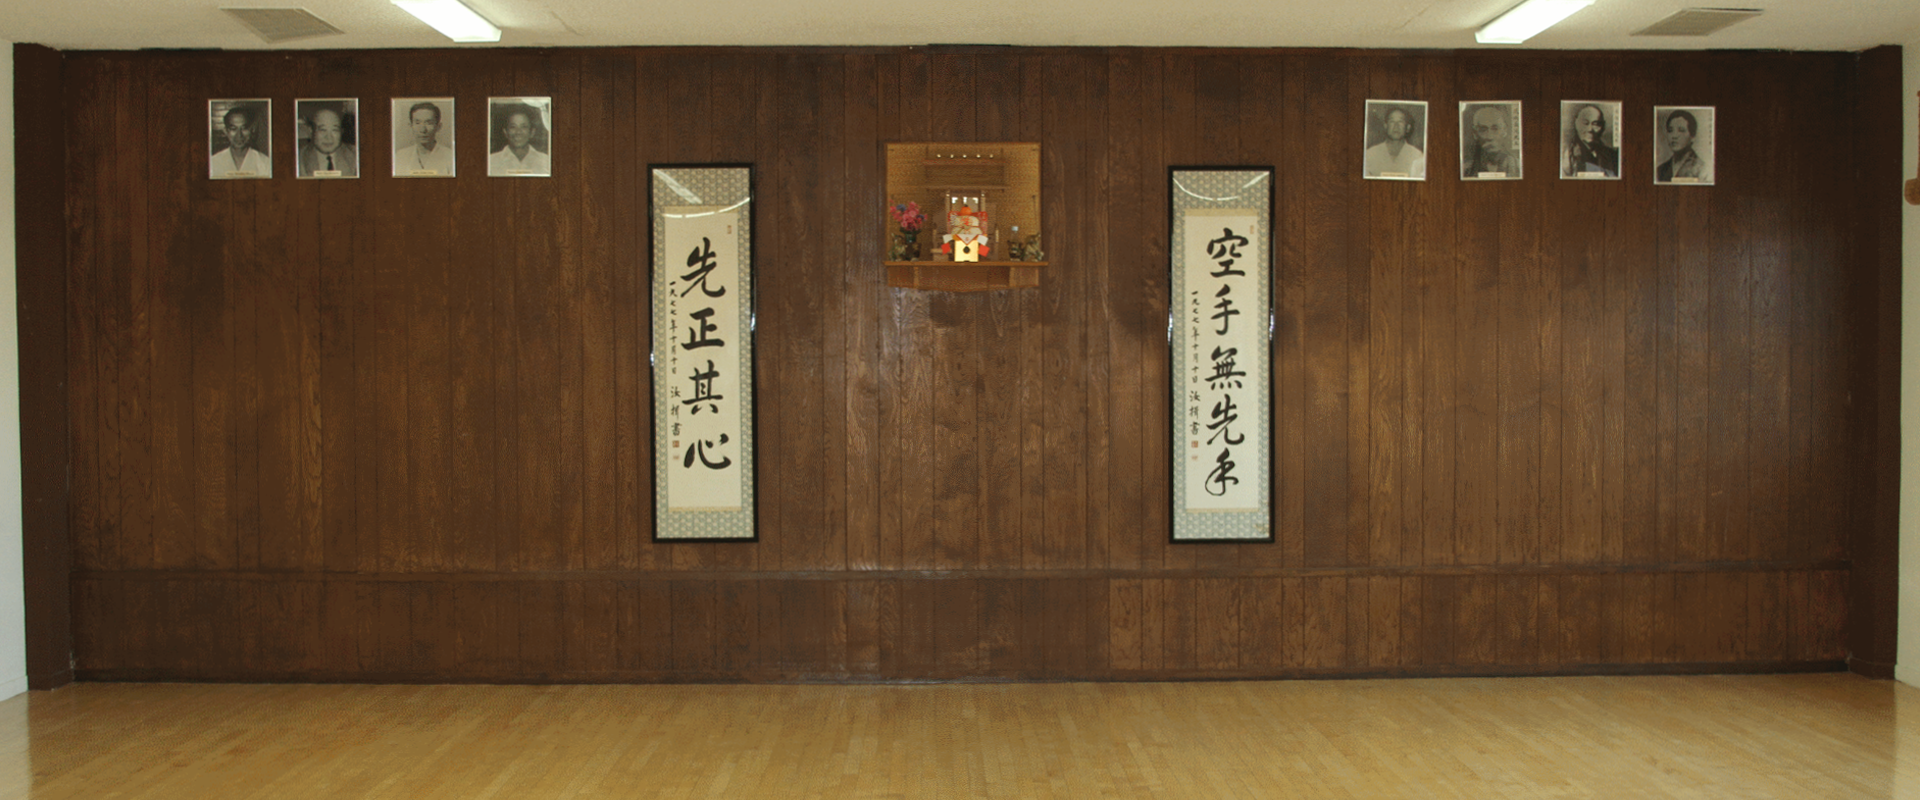 先正其心
一九七七年十月十日
書
空手無先手
一九七七年十月十日
書